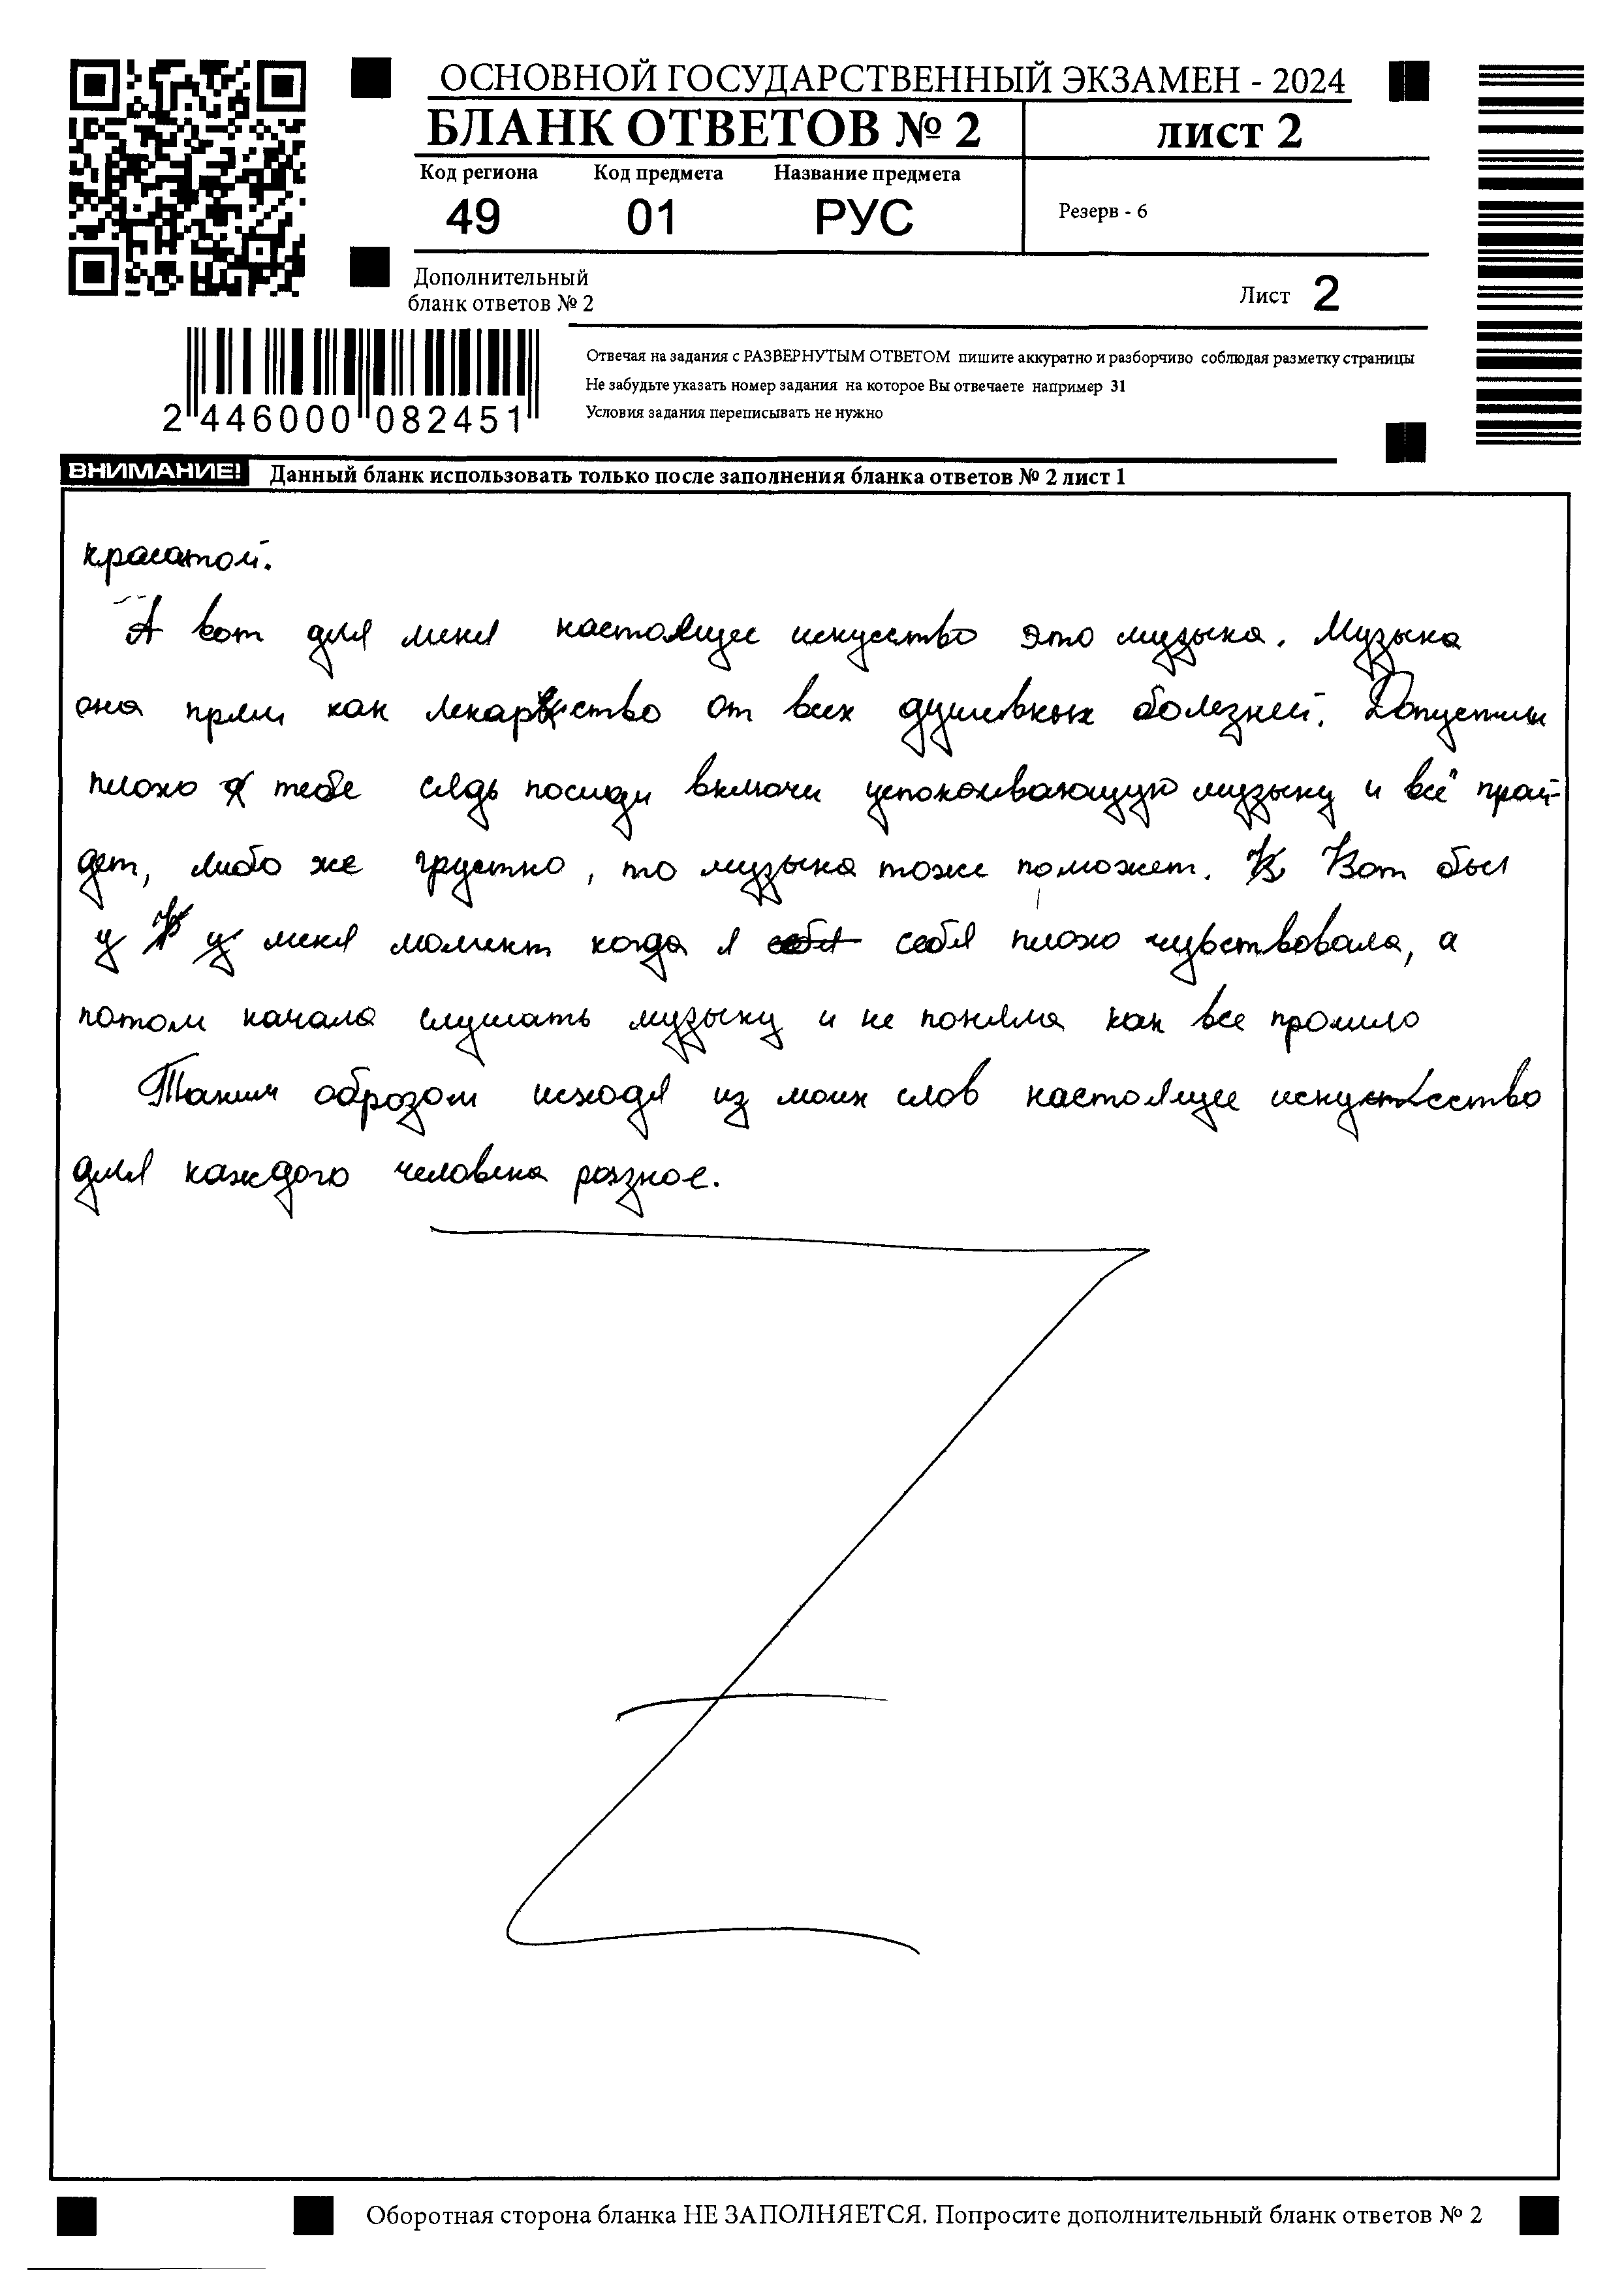 ОСНОВНОЙ ГОСУДАРСТВЕННЫЙ ЭКЗАМЕН - 2024
БЛАНК ОТВЕТОВ № 2
лист 2
Код региона Код предмета Название предмета
49 01 РУС
Резерв - 6
Дополнительный
бланк ответов № 2
Лист 2
Отвечая на задания с РАЗВЕРНУТЫМ ОТВЕТОМ пишите аккуратно и разборчиво соблюдая разметку страницы
Не забудьте указать номер задания на которое Вы отвечаете например 31
Условия задания переписывать не нужно
2 446000 082451
ВНИМАНИЕ! Данный бланк использовать только после заполнения бланка ответов № 2 лист 1
красатой.
А вот для меня настоящее искусство это музыка. Музыка
она прям как лекарство от всех душевных болезней. Допустим
плохо тебе сядь посиди включи успокоивающую музыку и всё прай-
дет, либо же грустно, то музыка тоже поможет. Вот был
у меня момент когда я себя плохо чувствовала, а
потом начала слушать музыку и не поняла как все прошло
Таким оброзом исходя из моих слов настоящее искусство
для каждого человека разное.
Оборотная сторона бланка НЕ ЗАПОЛНЯЕТСЯ. Попросите дополнительный бланк ответов № 2